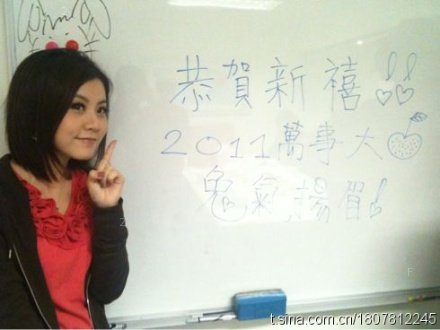 恭賀新禧
2011萬事大
鬼氣揚眉
t.sina.com.cn/1807812245